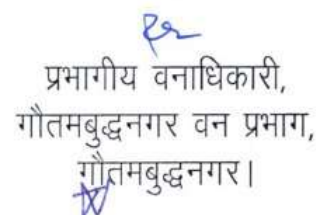 प्रभागीय वनाधिकारी,
गौतमबुद्धनगर वन प्रभाग,
गौतमबुद्धनगर।